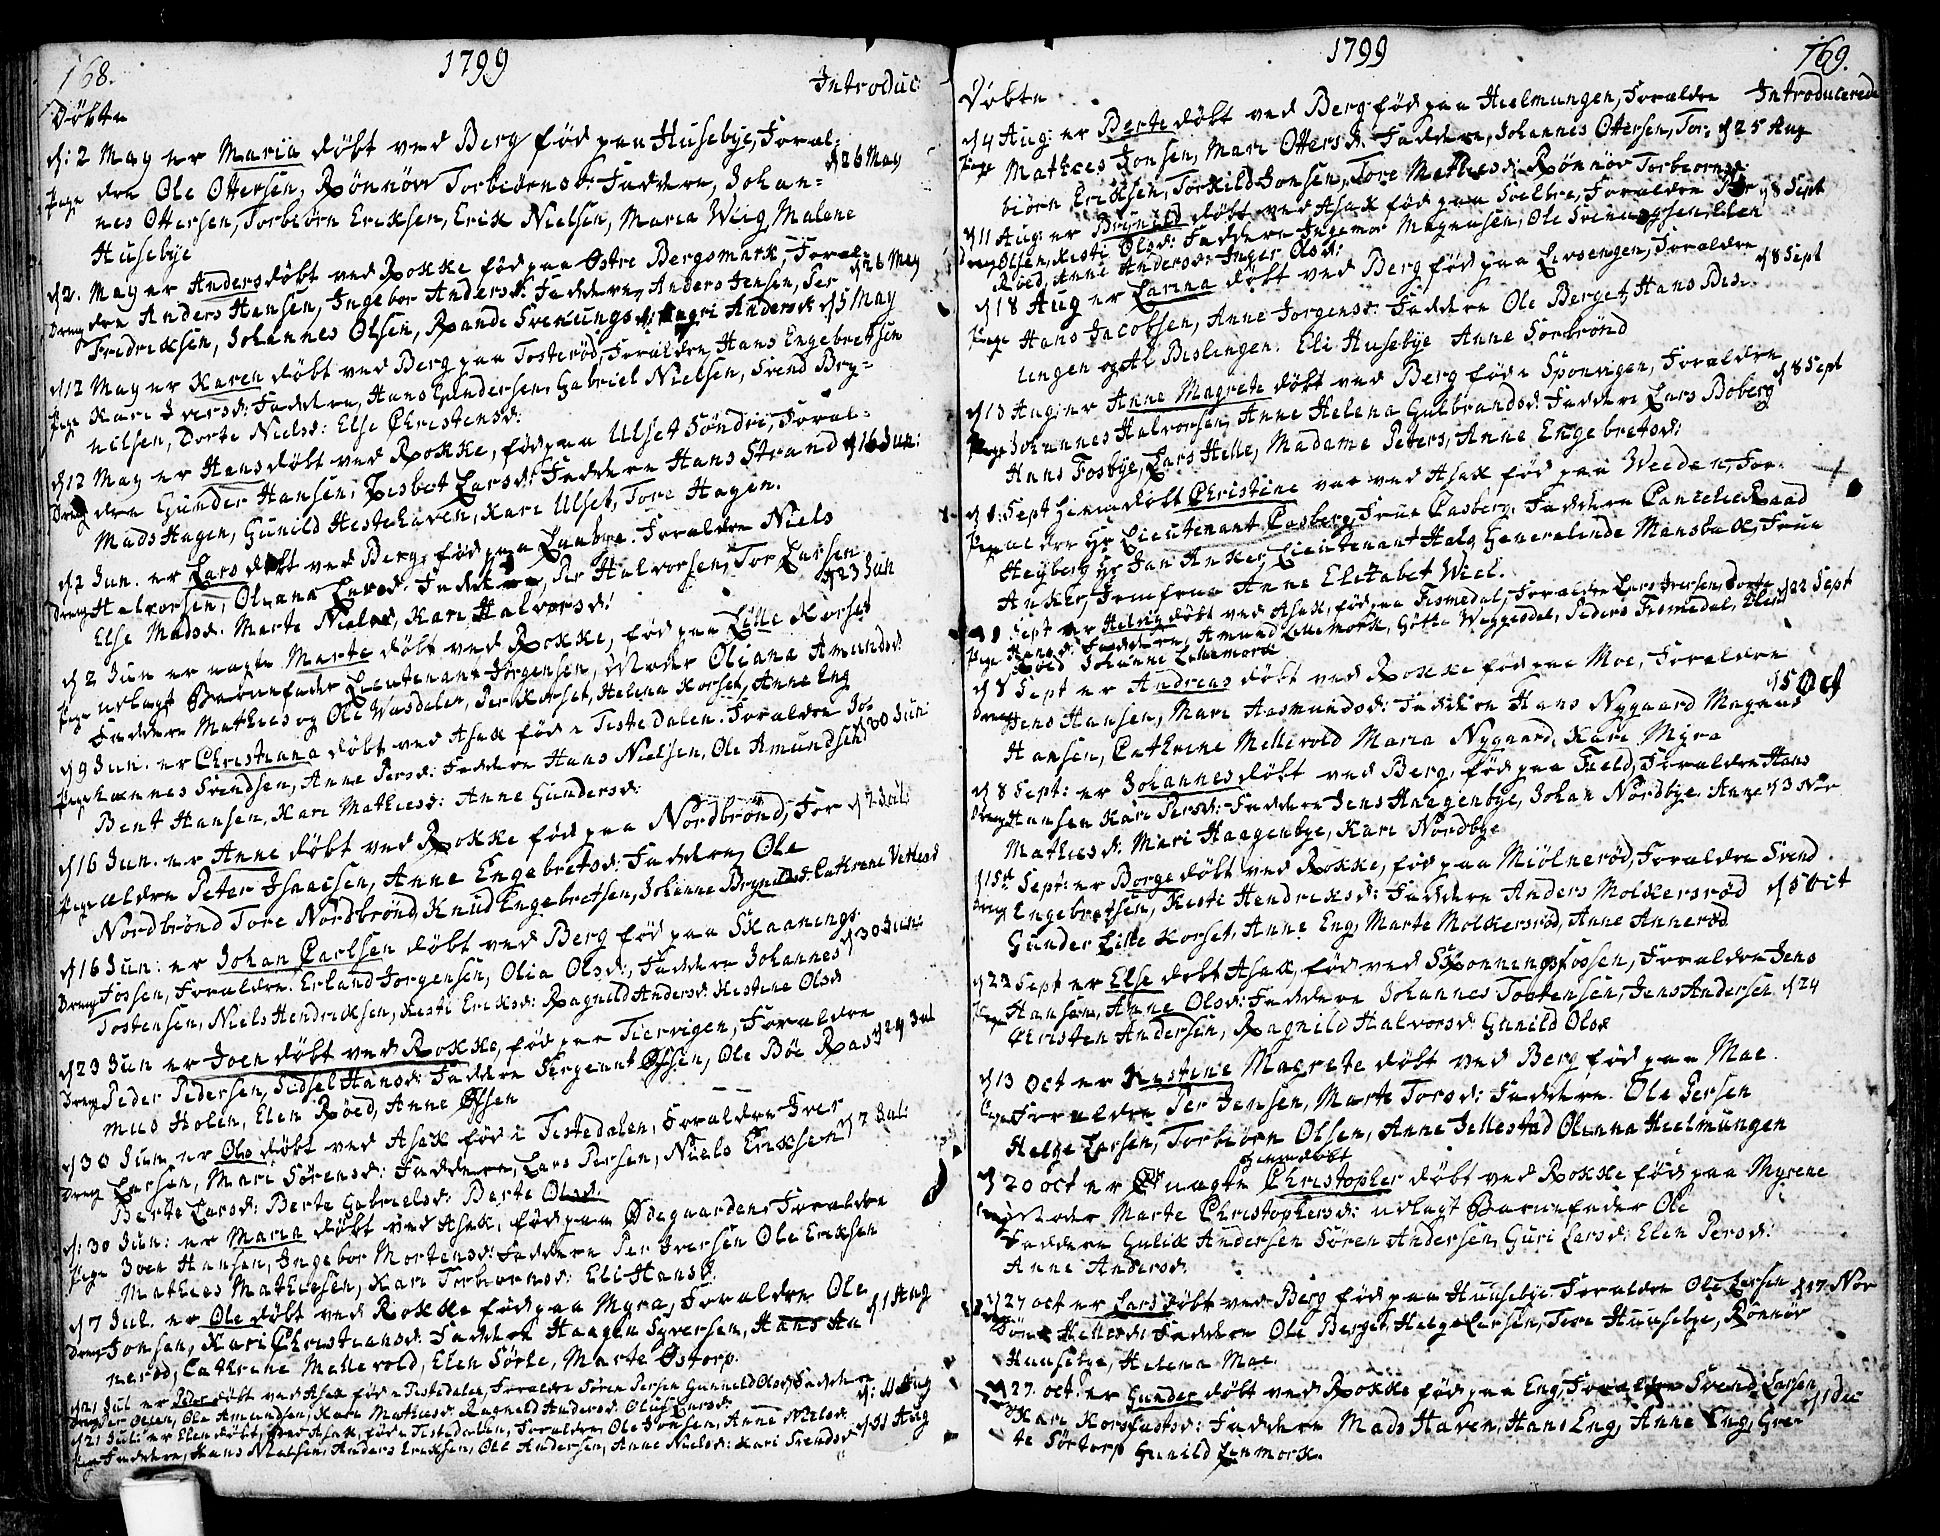 168.
1799
Introduc:
Döbte
d: 2 May er Maria döbt ved Berg föd paa Husebye, Foræl-
dre Ole Ottersen, Rönnöw Torbiörnsd: Faddere, Johan- d 26 May
Pige
nes Ottersen, Torbiörn Eriksen, Erik Nielsen, Maria Wiig, Malene
Husebye
d 2. May er Anders döbt ved Rokke föd paa Østre Bergsmark, Foræl- d 26 May
Dreng dre Anders Hansen, Ingebor Andersd: Faddere, Anders Jensen, Per
Fredriksen, Johannes Olsen, Rande Svenungsd: Andersd d 5 May
d 12 May er Karen döbt ved Berg paa Tosteröd, Forældre, Hans Engebretsen
Pige Kari Iversd: Faddere, Hans Gundersen, Gabriel Nielsen, Svend Bry-
nilsen, Dorte Nielsd: Else Christensd:
d 12 May er Hans döbt ved Rokke, föd paa Ulset Söndre, Foræl-
Dreng dre Gunder Hansen, Lisbet Larsd: Faddere Hans Strand d 16 Jun:
Mads Hagen, Gunild Hestehaven, Kari Ulset, Tore Hagen.
d 2 Jun. er Lars döbt ved Berg, föd paa Forældre Niels
Dreng Halvorsen, Oleana Larsd: Faddere, Per Halvorsen, Tor Larsen
Else Madsd. Marte Nielsd, Kari Halvorsd: d 23 Jun
d 2 Jun er uægte Marte döbt ved Rokke, föd paa Lille Korset
Pige udlagt Barnefader Lieutenant Jörgensen, Moder Oliana Amundsd:
Faddere Mathies og Ole Wasdalen, Per Korset, Helena Korset, Anne Eng
d 9 Jun. er Christiana döbt ved Asak föd i Tistedalen. Forældre Jo- d 30 Jun:
Pige hannes Svendsen, Anne Persd: Faddere Hans Nielsen, Ole Amundsen
Bent Hansen, Kari Mathiesd: Anne Gundersd:
d 16 Jun. er Anne döbt ved Rokke föd paa Nordbrönd, For d 7 Jul:
Pige ældre Peter Isaacsen, Anne Engebretsd: Faddere, Ole
Nordbrönd Tore Nordbrönd, Knud Engebretsen, Johanne Brynildsd: Cathrene
d 16 Jun: er Johan Carlsen döbt ved Berg föd paa Skaanings-
Dreng Fossen, Forældre. Erland Jorgensen, Olia Olsd:, Faddere Johannes d 30 Jun:
Tostensen, Niels Hendriksen, Kesti Eriksd: Ragnild Andersd: Kestene Olsd
d 23 Jun er Joen döbt ved Rokke, föd paa Tiervigen, Forældre
Dreng Peder Pedersen, Sidsel Hansd: Faddere Sergeant Olsen, Ole Böe Ras- d 24 Jul
mus Holen, Elen Röed, Anne Olsen
d 30 Jun er Ole döbt ved Asak föd i Tistedalen, Forældre Iver
Dreng Larsen, Mari Sörensd: Faddere, Lars Persen, Niels Eriksen d 7 Jul:
Berte Larsd: Berte Gabrielsd: Berte Olsd:
d: 30 Jun: er Maria döbt ved Asak, föd paa Ödegaarden Forældre
Pige Joen Hansen, Ingebor Mortensd: Faddere Per Iversen Ole Eriksen
Mathies Mathiesen, Kari Torbiörnsd: Eli Hansd:
d 7 Jul. er Ole döbt ved Rokke föd paa Myra, Forældre Ole
Dreng Jonsen, Kari Christiansd: Faddere Haagen Syversen, Hans An d 1 Aug
neröd, Cathrine Mellevold, Elen Sörle, Marte Östorp.
d 21 Jul er Peder döbt ved Asak föd i Tistedalen, Forældre Sören Persen Gunnild Olsd: Faddere
Dreng Per Olsen, Ole Amundsen, Kari Mathiesd: Ragnild Andersd: Larsd: d: 11 Aug
d 21 Jul: er Elen döbt, ved Asak, föd i Tistedalen, Forældre Ole Jonsen, Anne Nielsd:
Pige Faddere, Hans Nielsen, Anders Eriksen, Ole Andersen, Anne Nielsd: Kari Svendsd d 11 Aug
1799
169.
Döbte
Introducerede
d 4 Aug: er Berte döbt ved Berg föd paa Hielmungen, Forældre
Pige Mathies Jonsen, Mari Ottersd: Faddere, Johannes Ottersen, Tor- d 25 Aug
biörn Eriksen, Torkild Jonsen, Tore Mathiesd: Rönnöv Torbiörnsd:
d 11 Aug: er Brynild döbt ved Asak föd paa Forældre Per d 8 Sept
Dreng Olsen, Kesti Olsd: Faddere Ingemor Magnusen, Ole Svenungsen, Elen
Röed, Anne Andersd: Inger Olsd:
d 18 Aug er Larina döbt ved Berg föd paa Forældre d 8 Sept
Pige Hans Jacobsen, Anne Jorgensd: Faddere Ole Berget, Hans Bis-
lingen og At Bislingen. Eli Husebye Anne Sorbrönd
d 13 Aug: er Anne Magrete döbt ved Berg föd i Sponvigen, Forældre
Pige Johannes Halvorsen, Anne Helena Gulbrandsd: Faddere Lars Boberg d 8 Sept
Hans Fosbye, Lars Helle, Madame Peters, Anne Engebretsd:
d 1. Sept hiemdöbt Christine var ved Asak föd paa Weeden, For-
Pige ældre Hr Lieutenant Casberg, Frue Casberg, Faddere Cancelie Raad
Heyberg Hr Jan Anker, Lieutenant Generalinde Mansbak, Frue
Anker, Jomfrue Anne Elizabet Wiel.
Sept er Helvig döbt ved Asak, föd paa Tismedal, Forældre Lars Iversen Dorte d 22 Sept
Pige Hansd: Faddere, Amund Lillemork, Götte Peder Tismedal, Elen
Röed Johanne Lillemork
d 8 Sept er Andreas döbt ved Rokke föd paa Moe, Forældre
Dreng Jens Hansen, Mari Aasmundsd: Faddere Hans Nygaard Magnus d 5 Oct
Hansen, Cathrine Mellevold Maria Nygaard, Kari Myra
d 8 Sept: er Johannes döbt ved Berg, föd paa Field, Forældre Hans
Dreng Hansen Kari Persd: Faddere Jens Haagenbye, Johan Nordbye. Anne d 3 Nov
Mathiesd: Mari Haagenbye, Kari Nordbye
d 15de Sept: er Borge döbt ved Rokke, föd paa Miölneröd, Forældre Svend
Dreng Engebretsen, Kesti Hendriksd: Faddere Anders Molkersröd d 5 Oct
Gunder Lille Korset, Anne Eng, Marte Molkersröd, Anne Anneröd
d 22 Sept er Else döbt Asak, föd ved Skonningsfossen, Forældre Jens
Pige Hansen, Anne Olsd: Faddere Johannes Tostensen, Jens Andersen d 24
Christen Andersen, Ragnild Halvorsd: Gunild Olsd
d 13 Oct er Kestine Magrete döbt ved Berg föd paa Moe.
Pige Forældre Per Jensen, Marte Torsd: Faddere. Ole Persen
Helge Larsen, Torbiörn Olsen, Anne Jellestad Olenna Hielmungen
hiemdöbt
d 20 Oct er uægte Christopher döbt ved Rokke föd paa Myrene
Dreng Moder Marte Christophersd: udlagt Barnefader Ole
Faddere Gulik Andersen Sören Andersen, Guri Larsd: Elen Persd:
Anne Andersd:
d 27 Oct er Lars döbt ved Berg föd paa Huusebye Forældre Ole Larsen d 17 Nov
Hellesd: Faddere Ole Berget, Helge Larsen, Tore Huusebye, Rönnöv
Huusebye, Helena Moe.
d 27 oct. er Gunder döbt ved Rokke föd paa Eng, Forældre Svend Larsen
Kari Korsfastsd: Faddere Mads Haven, Hans Eng, Anne Eng, Gre- d 1 Dec
te Sörtorp Gunild Lenmork.